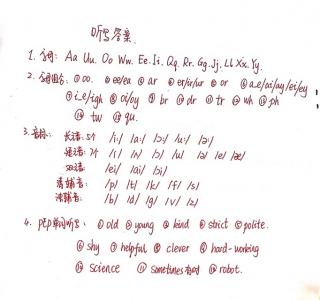 听写答案.
1. 字母: Aa Uu. Oo Ww. Ee. Ii. Qq. Rr. Gg. Jj. Ll Xx. Yy.
2. 字母组合: ① oo. ② ee/ea ③ ar ④ er/ir/ur ⑤ or ⑥ a_e/ai/ay/ei/ey
⑦ i_e/igh ⑧ oi/oy ⑨ br ⑩ dr ⑪ tr ⑫ wh ⑬ ph
⑭ tw ⑮ qu.
3. 音标: 长音: 5个 /i:/ /a:/ /ɔ:/ /u:/ /ə:/
短音: 7个 /ɪ/ /ʌ/ /ɔ/ /u/ /ə/ /e/ /æ/
双音: /ei/ /ai/ /ɔi/
清辅音: /p/ /t/ /k/ /f/ /s/
浊辅音: /b/ /d/ /g/ /v/ /z/
4. PEP单词听写: ① old ② young ③ kind ④ strict ⑤ polite.
⑥ shy ⑦ helpful ⑧ clever ⑨ hard-working
⑩ science ⑪ sometimes有时 ⑫ robot.